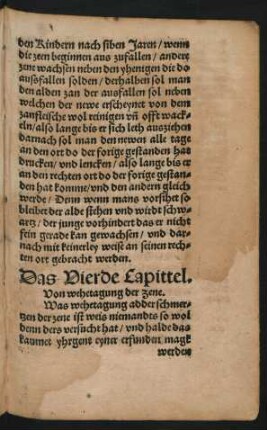 den Kindern nach siben Jaren / wenn
die zeen beginnen aus zufallen / andere
zene wachsen neben den yhenigen die do
ausfallen solden / derhalben sol man
den alden zan der ausfallen sol neben
wilchen der newe erscheynet von dem
zanfleische wol reinigen vñ offt wack-
eln / also lange bis er sich leth ausziehen
darnach sol man den newen alle tage
an den ort do der forige gestanden hat
drucken / und lencken / also lange bis er
an den rechten ort do der forige gestan-
den hat komme / und den andern gleich
werde / Denn wenn mans vorsihet so
bleibet der alde stehen und wirdt schw-
artz / der junge vorhindert das er nicht
fein gerade kan gewachsen / und dar-
nach mit keinerley weise an seinen rech-
ten ort gebracht werden.
Das Vierde Capittel.
Von wehetagung der Zene.
Was wehetagung adder schmer-
tzen der zene ist weis niemandts so wol
denn ders versucht hat / und halde das
kaumet yhrgent eyner erfunden magk
werden